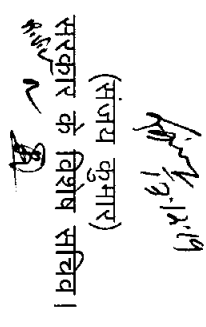 17.12.19
(संजय कुमार)
सरकार के विशेष सचिव।